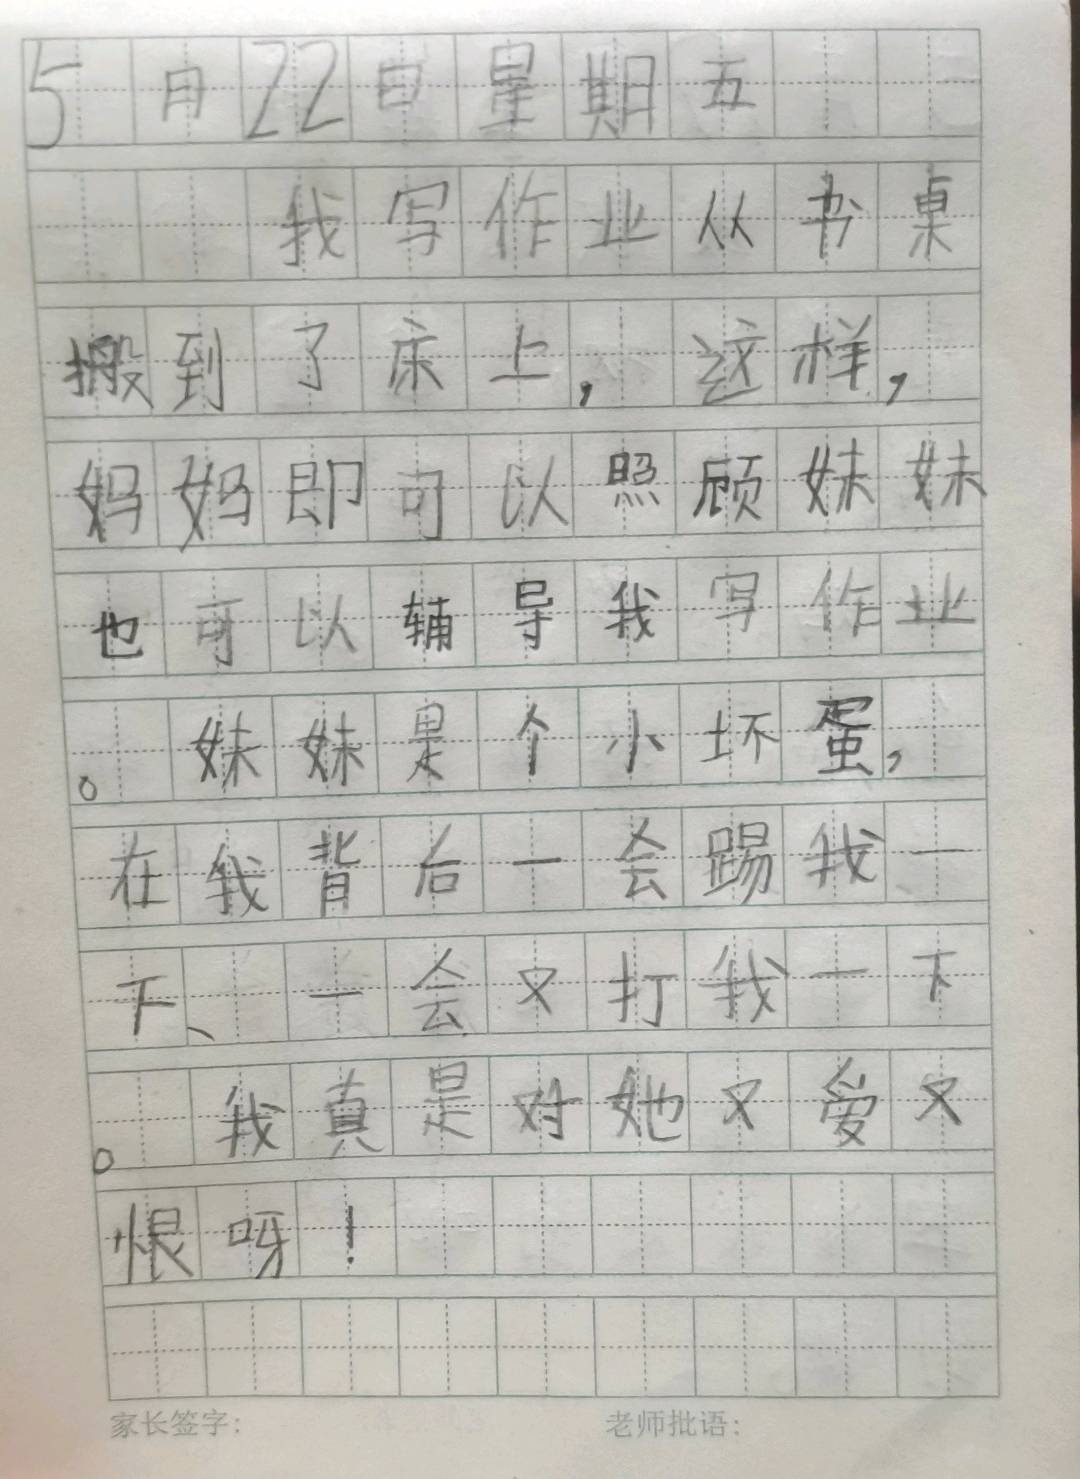 5月22日星期五
我写作业从书桌
搬到了床上,这样,
妈妈即可以照顾妹妹
也可以辅导我写作业
。妹妹是个小坏蛋,
在我背后一会踢我一
下、一会又打我一下
。我真是对她又爱又
恨呀!
家长签字: 老师批语: